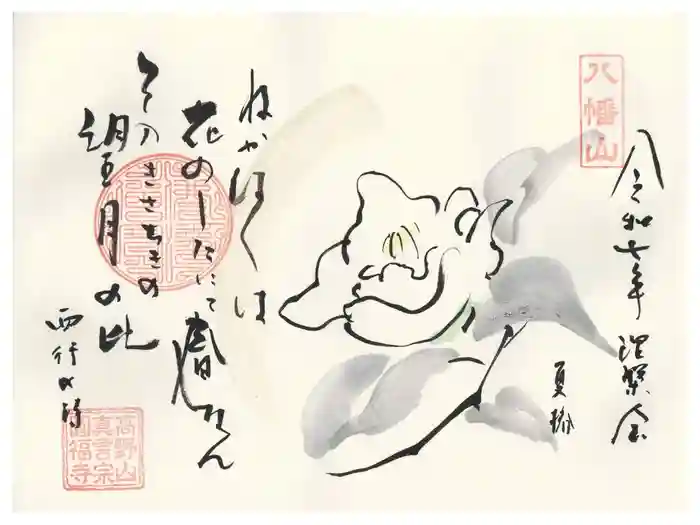 八幡山
令和七年 涅槃会
夏椿
ねかはくは
花のしたにて春しなん
そのきさらきの
望月の比
西行の詩
高野山
真言宗
圓福寺